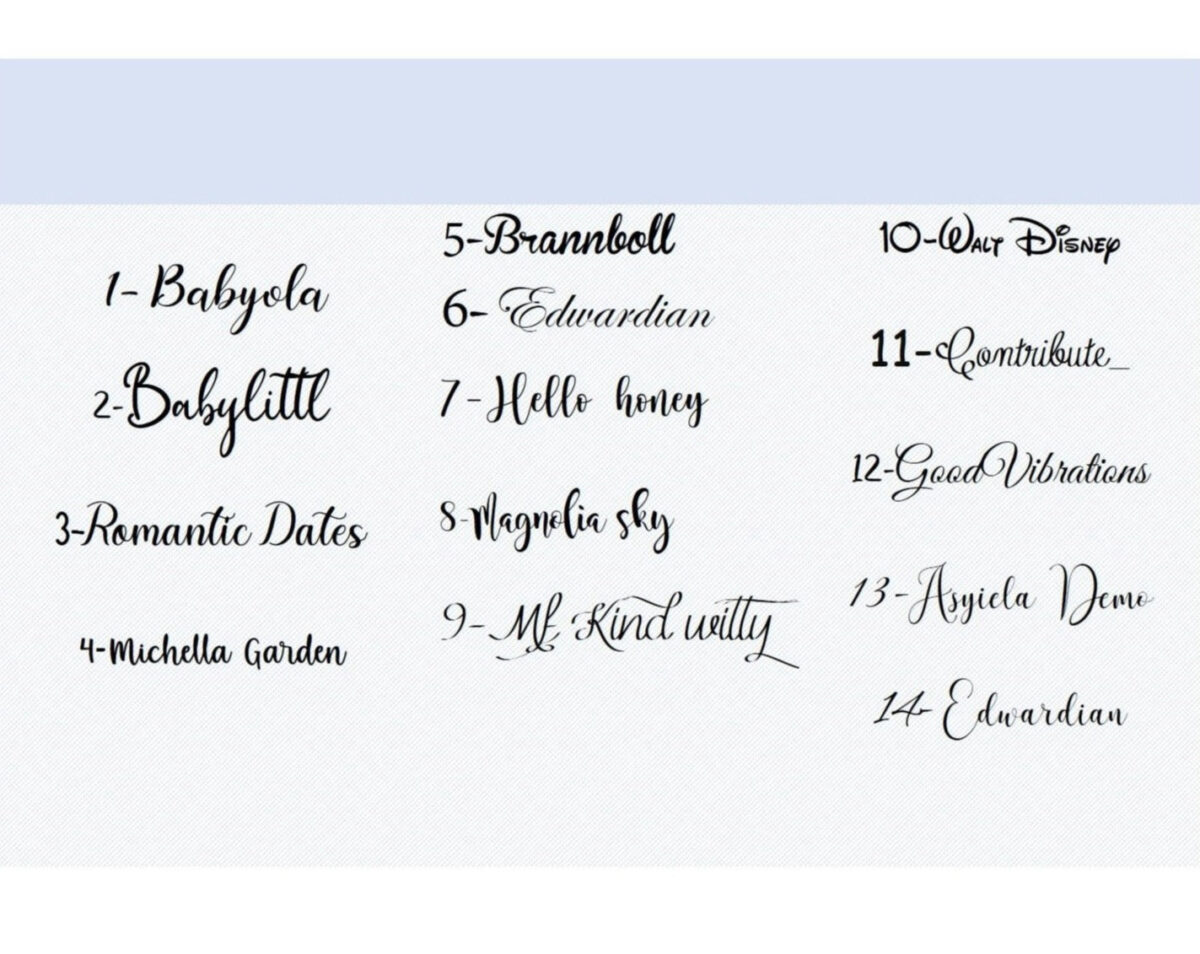 1- Babyola
2-Babylittl
3-Romantic Dates
4-Michella Garden
5-Brannboll
6- Edwardian
7-Hello honey
8-Magnolia sky
9- Mf Kind witty
10-Walt Disney
11-Contribute_
12-Good Vibrations
13-Asyiela Demo
14- Edwardian